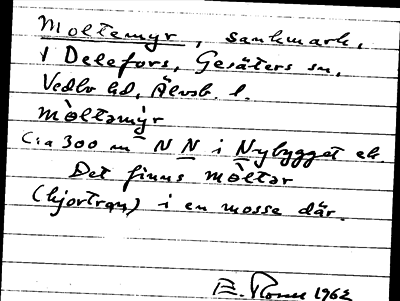 Moltemyr, sankmark,
V Delefors, Gesäters sn,
Vedbo hd, Älvsb. l.
mòltəmy̒r
C:a 300 m N N i Nybygget ek.
Det finns mòltər
(hjortron) i en mosse där.
1962